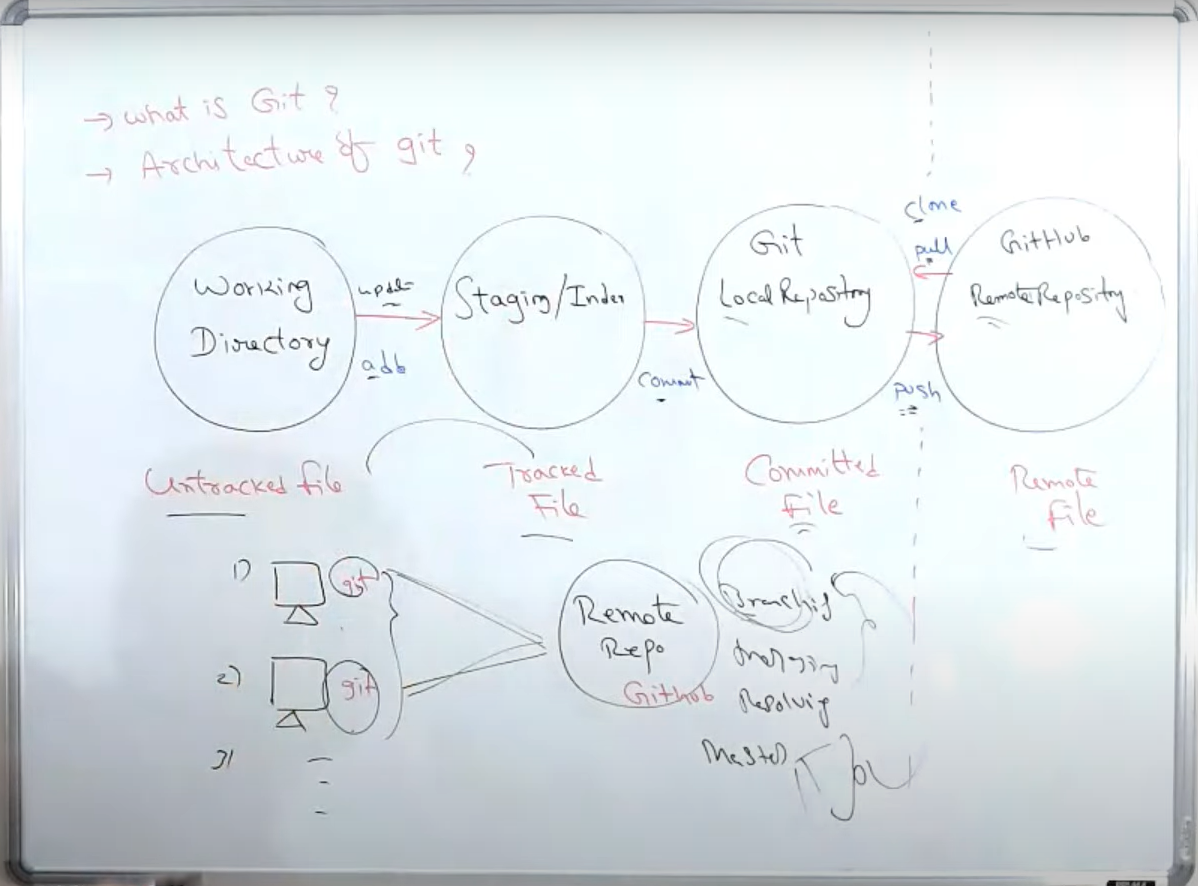 → what is Git ?
→ Architecture of git ?
Working
Directory
update
add
Staging/Index
commit
Git
Local Repository
clone
pull
push
GitHub
Remote Repository
Untracked file
Tracked
File
Committed
File
Remote
File
1)
git
2)
git
3)
Remote
Repo
Github
Branching
merging
Resolving
Master